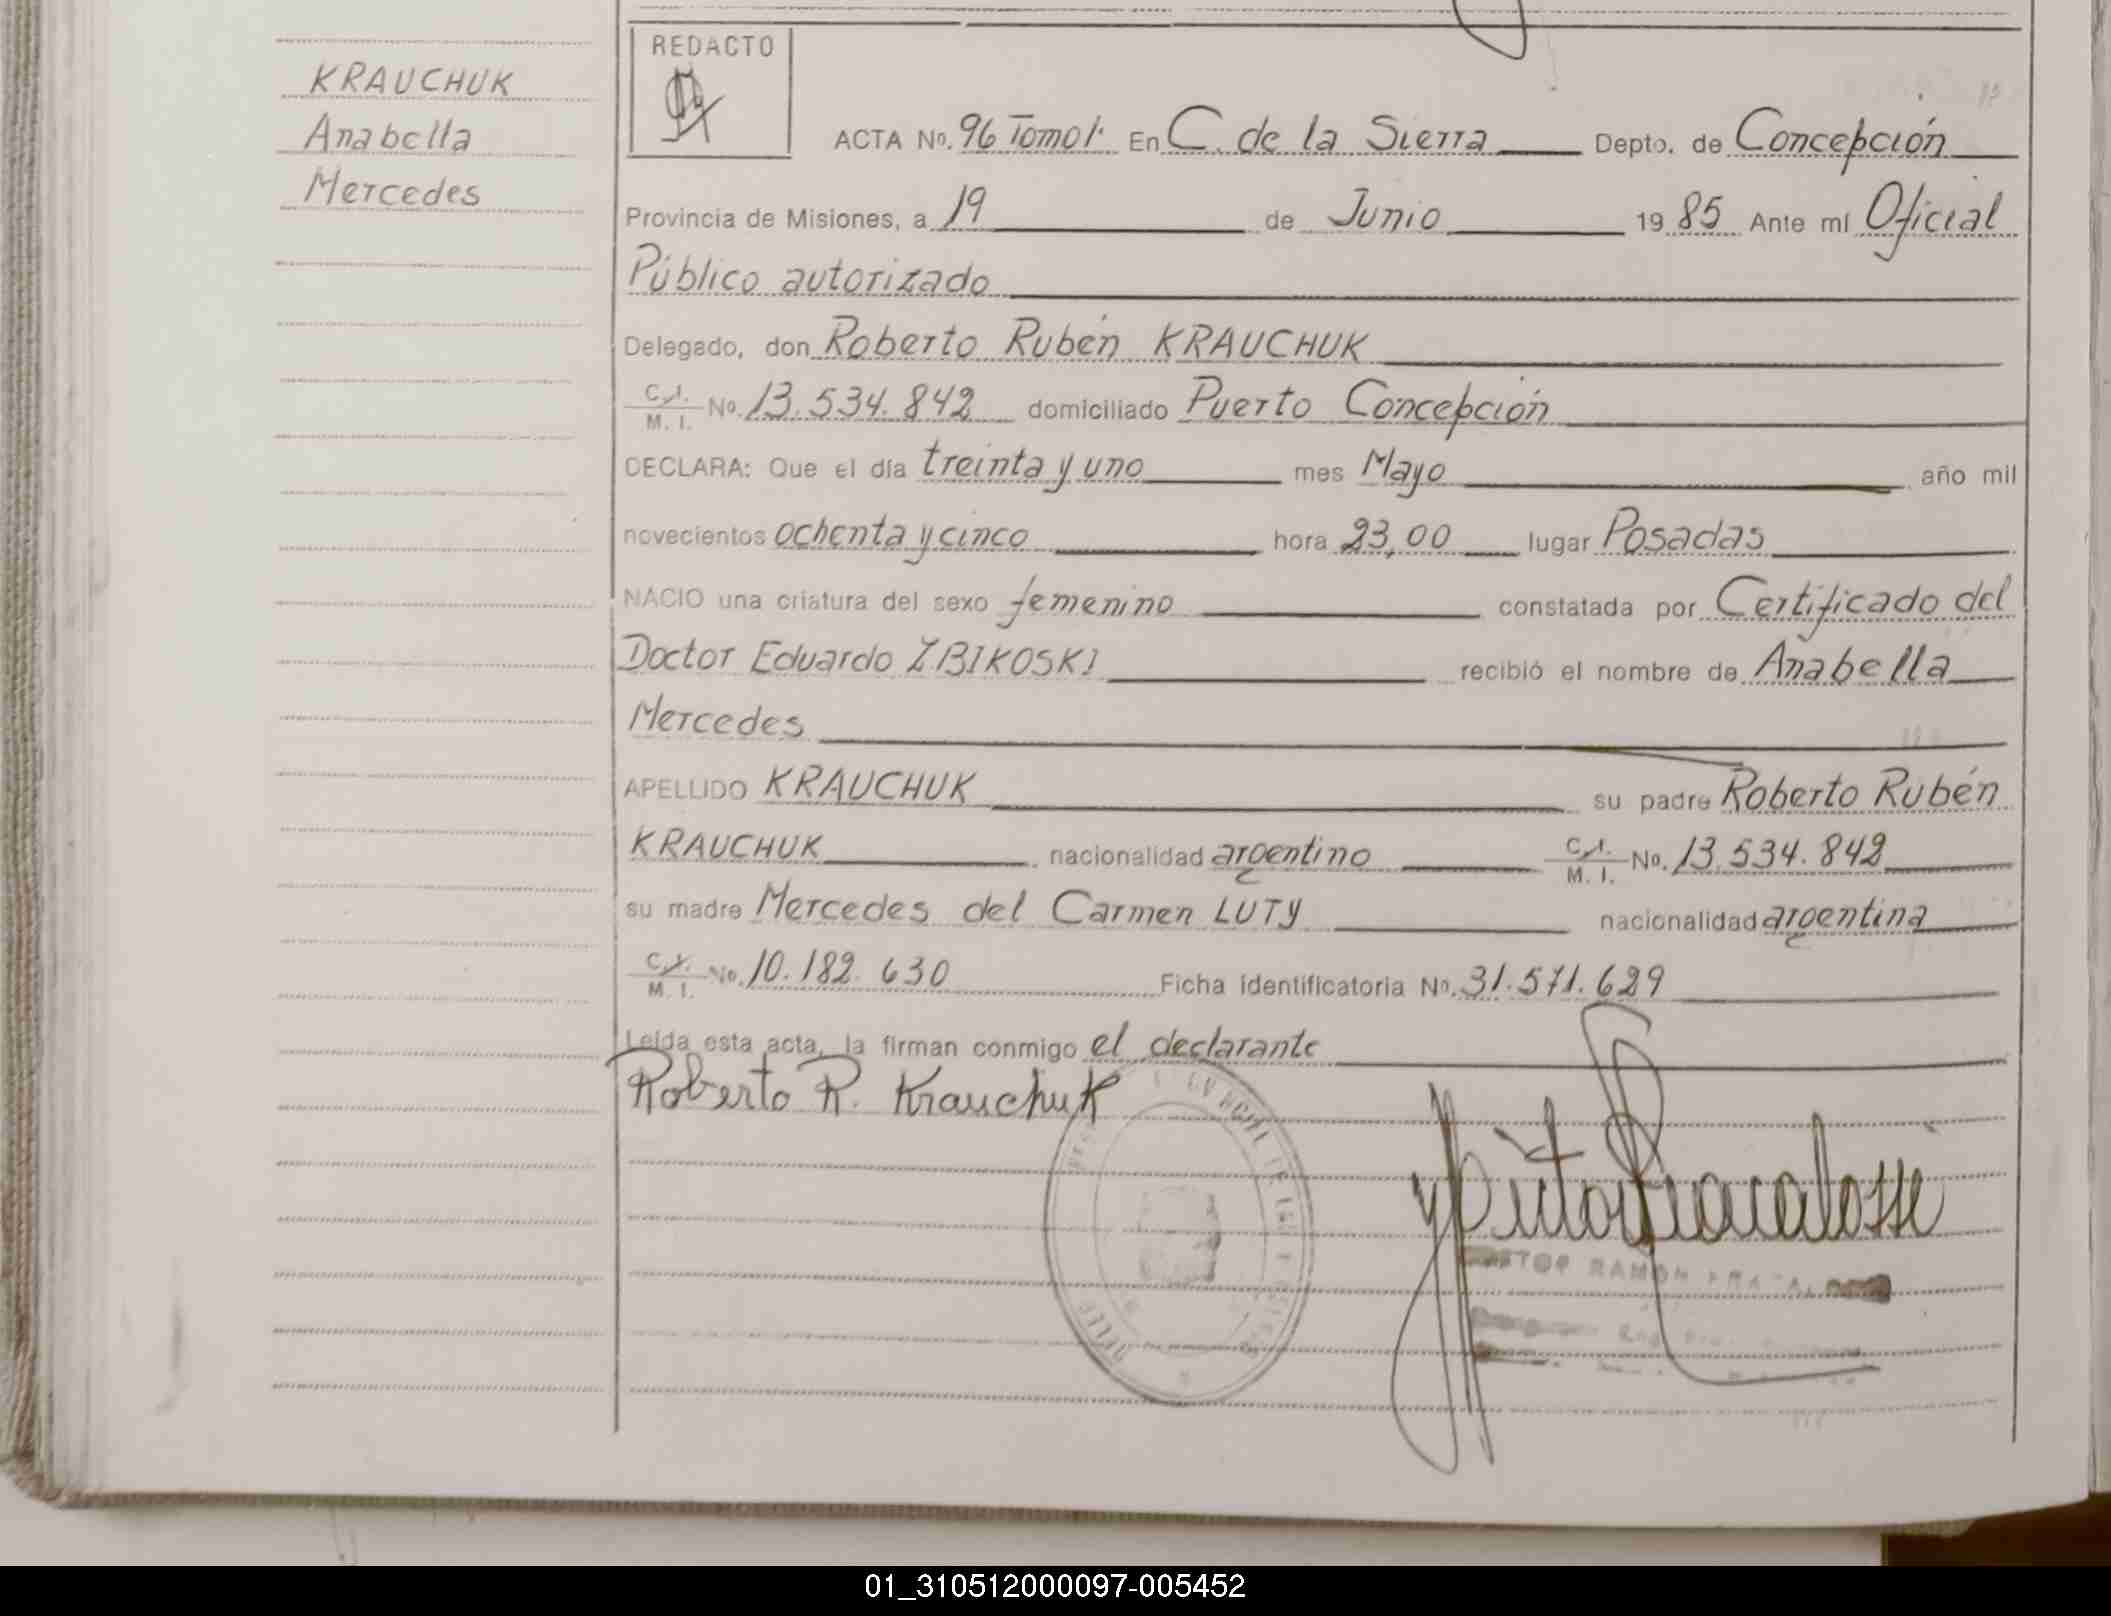 KRAUCHUK
Anabella
Mercedes
REDACTO
ACTA No. 96 Tomo I. En C. de la Sierra Depto. de Concepción
Provincia de Misiones, a 19 de Junio 1985 Ante mí Oficial
Público autorizado
Delegado, don Roberto Rubén KRAUCHUK
C.I. M. I. No. 13.534.842 domiciliado Puerto Concepción
DECLARA: Que el día treinta y uno mes Mayo año mil
novecientos ochenta y cinco hora 23,00 lugar Posadas
NACIO una criatura del sexo femenino constatada por Certificado del
Doctor Eduardo ZBIKOSKI recibió el nombre de Anabella
Mercedes
APELLIDO KRAUCHUK su padre Roberto Rubén
KRAUCHUK nacionalidad argentino C.I. M. I. No. 13.534.842
su madre Mercedes del Carmen LUTY nacionalidad argentina
C.I. M. I. No. 10.182.630 Ficha identificatoria No. 31.571.629
Leída esta acta, la firman conmigo el declarante
Roberto R. Krauchuk
RAMON
01_310512000097-005452